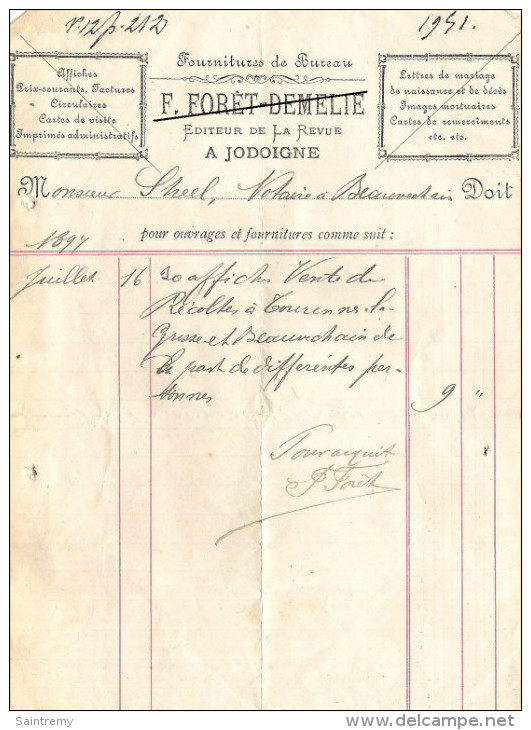 V. 12 p. 212
1951.
Fournitures de Bureau
Affiches
Prix-courants, Factures
Circulaires
Cartes de visite
Imprimés administratifs
F. FORÊT-DEMELIE
EDITEUR DE LA REVUE
A JODOIGNE
Lettres de mariage
de naissance et de décès
Images mortuaires
Cartes de remerciments
etc. etc.
Monsieur Sheel, Notaire à Beauvechain Doit
pour ouvrages et fournitures comme suit :
1897
Juillet 16 30 affiches Vente de
Récoltes à Tourinnes-la-
Grosse et Beauvechain de
la part de différentes per-
sonnes 9 "
Pour acquit
F. Forêt
Saintremy
www.delcampe.net